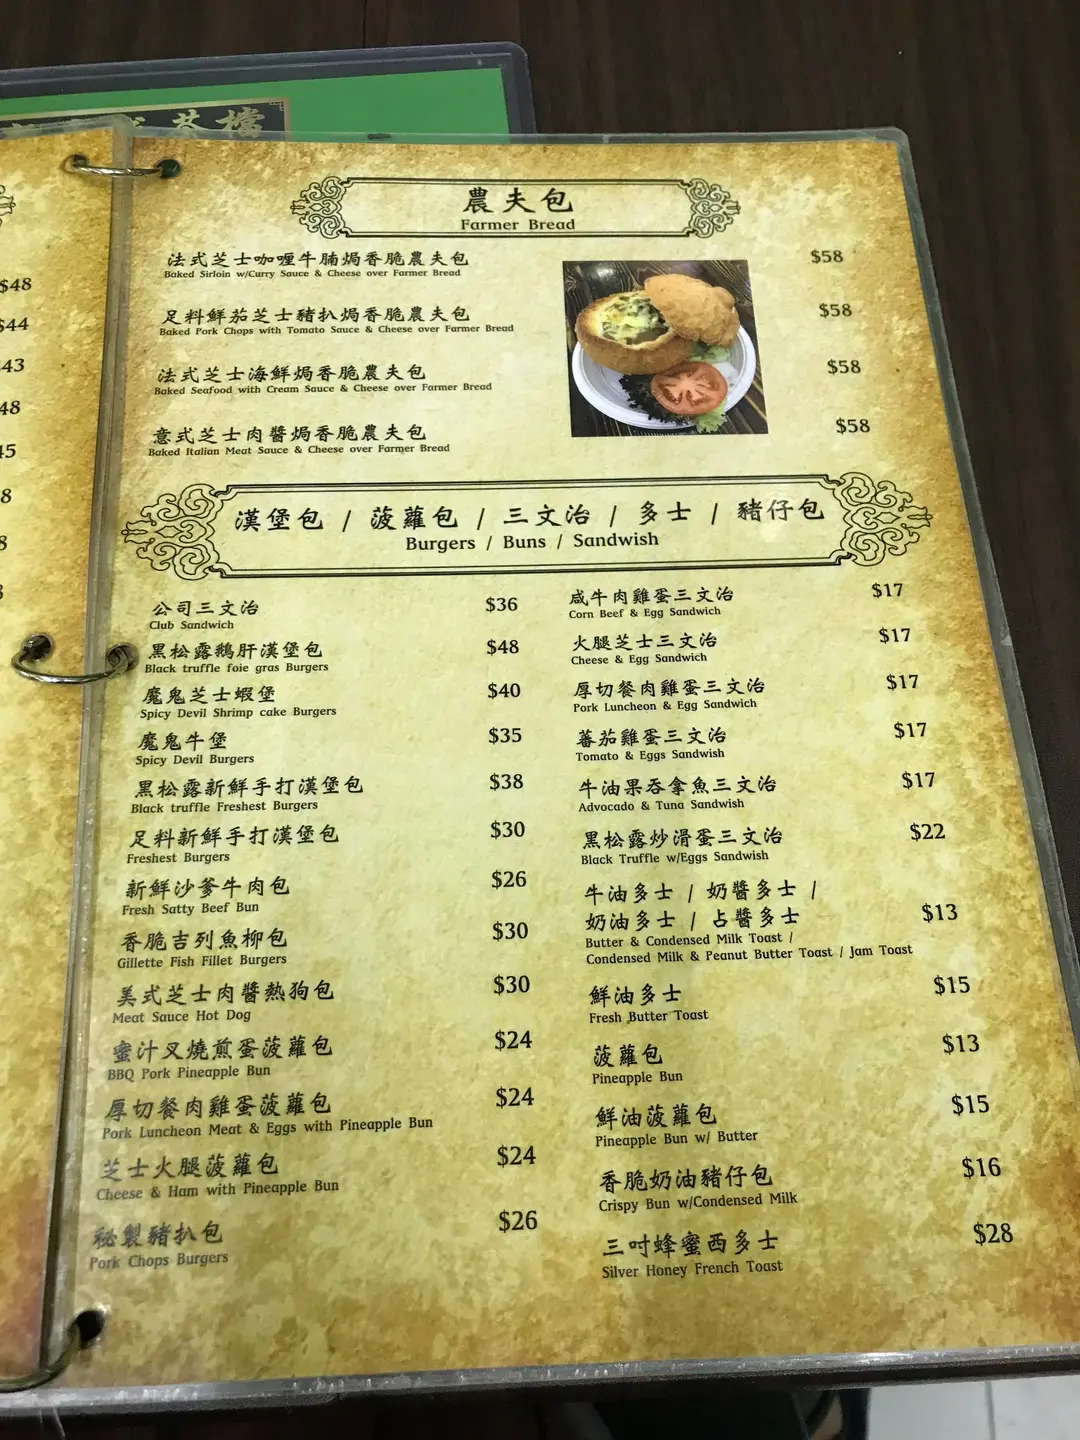 茶檔
$48
$44
43
48
45
8
8
3
農夫包
Farmer Bread
法式芝士咖喱牛腩焗香脆農夫包 $58
Baked Sirloin w/Curry Sauce & Cheese over Farmer Bread
足料鮮茄芝士豬扒焗香脆農夫包 $58
Baked Pork Chops with Tomato Sauce & Cheese over Farmer Bread
法式芝士海鮮焗香脆農夫包 $58
Baked Seafood with Cream Sauce & Cheese over Farmer Bread
意式芝士肉醬焗香脆農夫包 $58
Baked Italian Meat Sauce & Cheese over Farmer Bread
漢堡包 / 菠蘿包 / 三文治 / 多士 / 豬仔包
Burgers / Buns / Sandwish
公司三文治 $36
Club Sandwich
黑松露鵝肝漢堡包 $48
Black truffle foie gras Burgers
魔鬼芝士蝦堡 $40
Spicy Devil Shrimp cake Burgers
魔鬼牛堡 $35
Spicy Devil Burgers
黑松露新鮮手打漢堡包 $38
Black truffle Freshest Burgers
足料新鮮手打漢堡包 $30
Freshest Burgers
新鮮沙爹牛肉包 $26
Fresh Satty Beef Bun
香脆吉列魚柳包 $30
Gillette Fish Fillet Burgers
美式芝士肉醬熱狗包 $30
Meat Sauce Hot Dog
蜜汁叉燒煎蛋菠蘿包 $24
BBQ Pork Pineapple Bun
厚切餐肉雞蛋菠蘿包 $24
Pork Luncheon Meat & Eggs with Pineapple Bun
芝士火腿菠蘿包 $24
Cheese & Ham with Pineapple Bun
秘製豬扒包 $26
Pork Chops Burgers
咸牛肉雞蛋三文治 $17
Corn Beef & Egg Sandwich
火腿芝士三文治 $17
Cheese & Egg Sandwich
厚切餐肉雞蛋三文治 $17
Pork Luncheon & Egg Sandwich
蕃茄雞蛋三文治 $17
Tomato & Eggs Sandwish
牛油果吞拿魚三文治 $17
Advocado & Tuna Sandwish
黑松露炒滑蛋三文治 $22
Black Truffle w/Eggs Sandwish
牛油多士 / 奶醬多士 /
奶油多士 / 占醬多士 $13
Butter & Condensed Milk Toast /
Condensed Milk & Peanut Butter Toast / Jam Toast
鮮油多士 $15
Fresh Butter Toast
菠蘿包 $13
Pineapple Bun
鮮油菠蘿包 $15
Pineapple Bun w/ Butter
香脆奶油豬仔包 $16
Crispy Bun w/Condensed Milk
三吋蜂蜜西多士 $28
Silver Honey French Toast